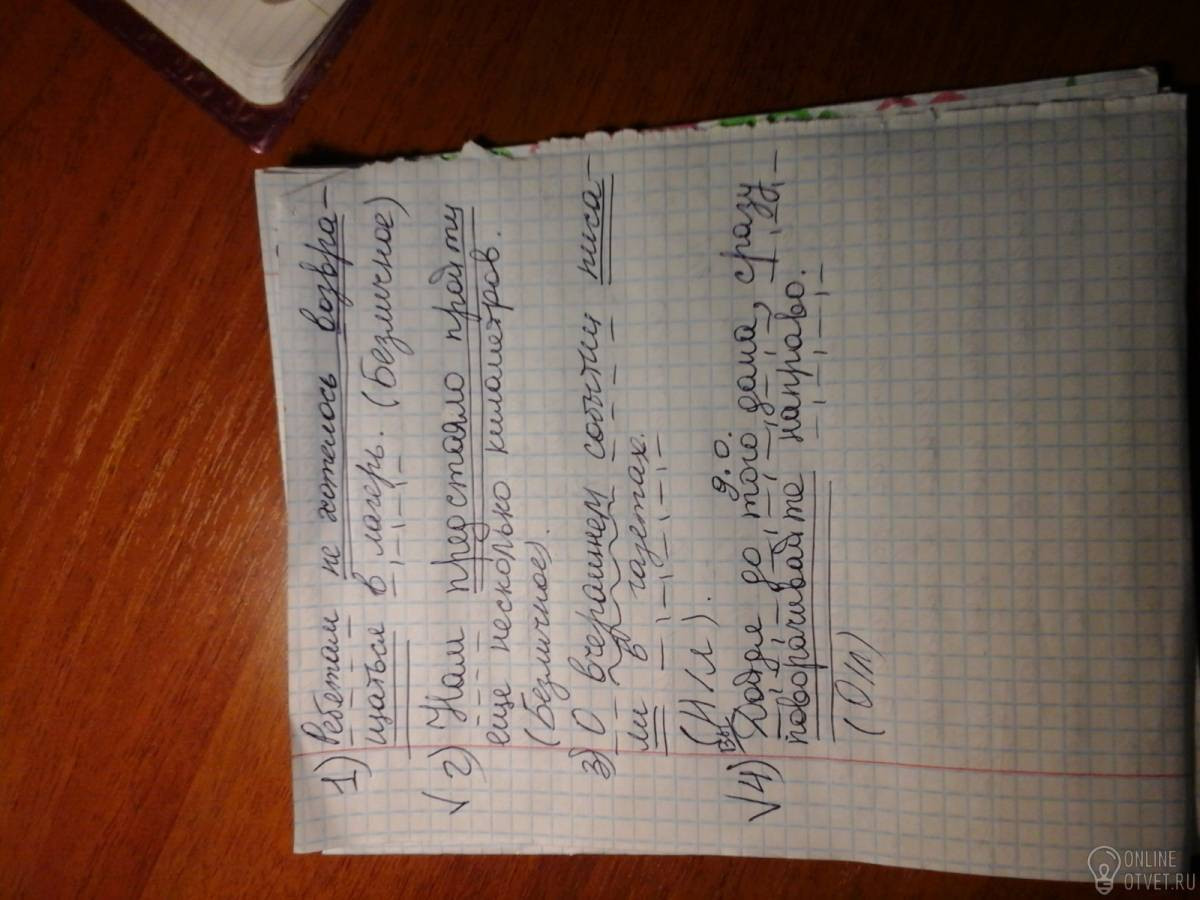 1) Ребятам не хотелось возвра-
щаться в лагерь. (Безличное)
√ 2) Нам предстояло пройти
еще несколько километров.
(Безличное).
3) О вчерашнем событии писа-
ли в газетах.
(Н/л).
вы д.о.
√4) Дойдя до того дома, сразу
поворачивайте направо.
(О/л)
ONLINE
OTVET.RU